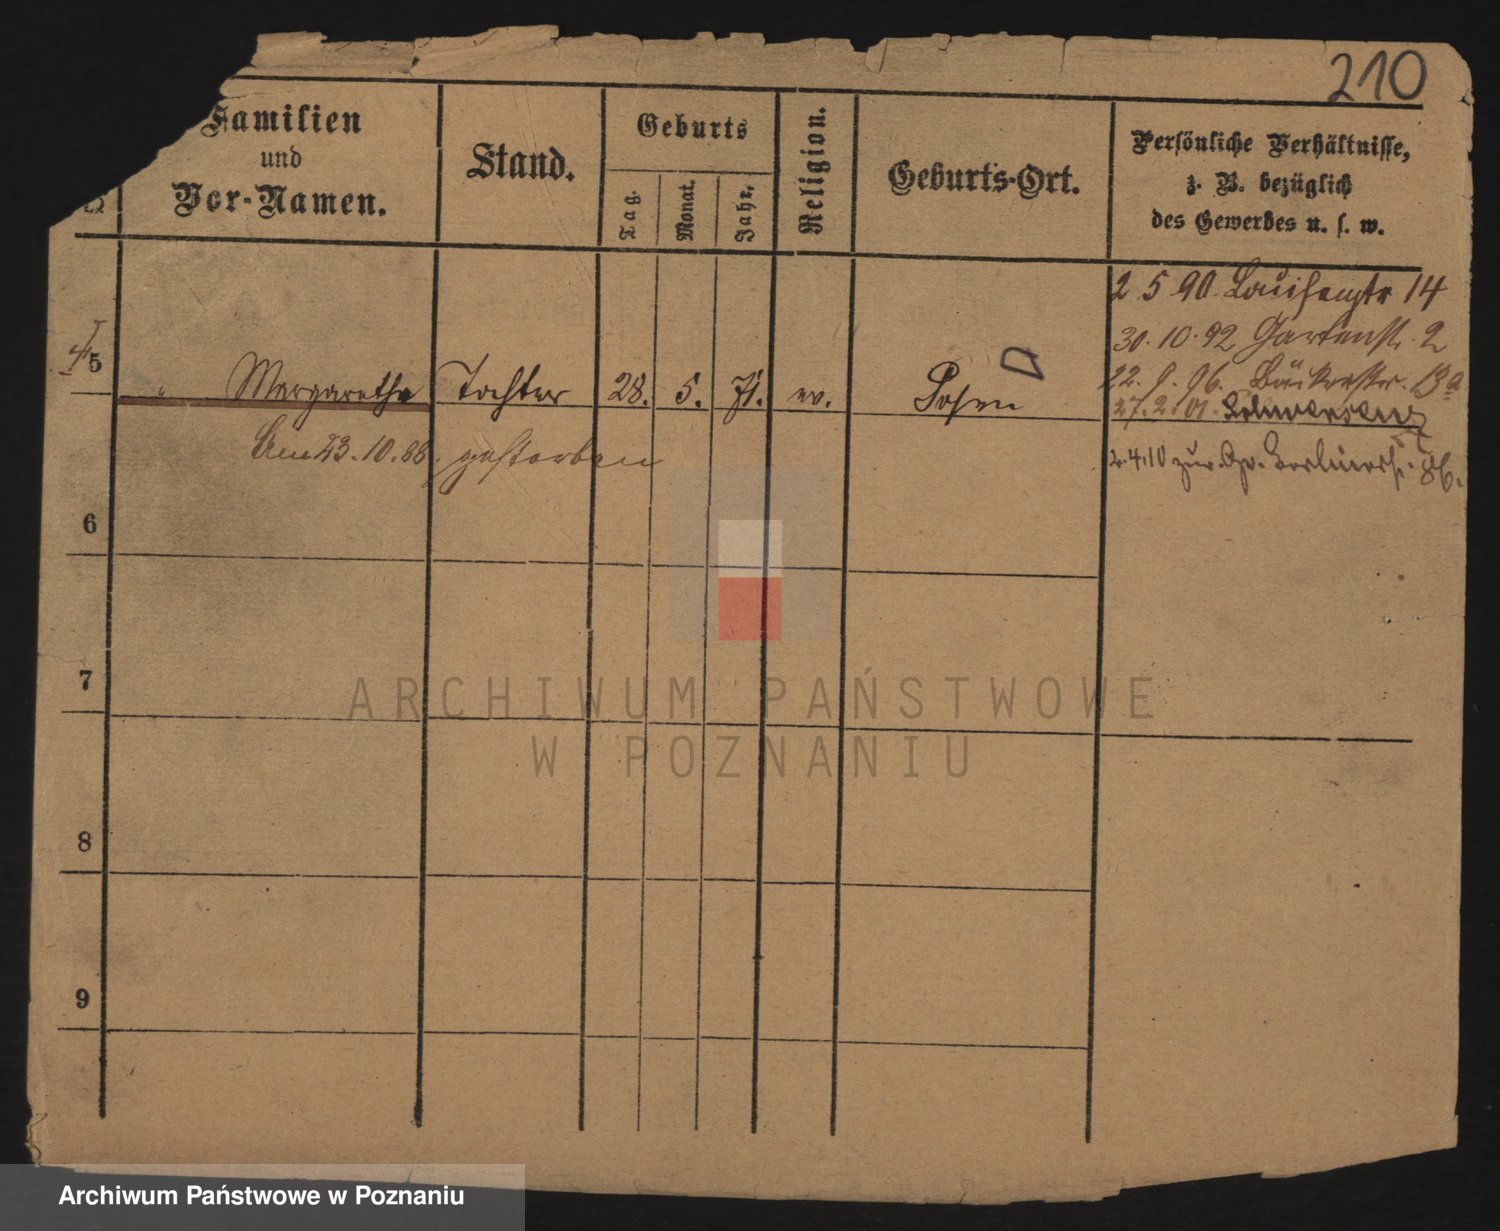 210
Familien
und
Vor-Namen.
Stand.
Geburts
Tag.
Monat.
Jahr.
Religion.
Geburts-Ort.
Persönliche Verhältnisse,
z. B. bezüglich
des Gewerbes u. s. w.
2 5 90 Louisenstr 14
30. 10. 92 Gartenstr. 2
5
" Margarethe Tochter 28. 5. 71. ev. Posen
22. 9. 96. Bäckerstr. 13a
27. 2. 01.
Am 23. 10. 88. gestorben
2. 4. 10 zur. 86.
6
7
8
9
ARCHIWUM PAŃSTWOWE
W POZNANIU
Archiwum Państwowe w Poznaniu